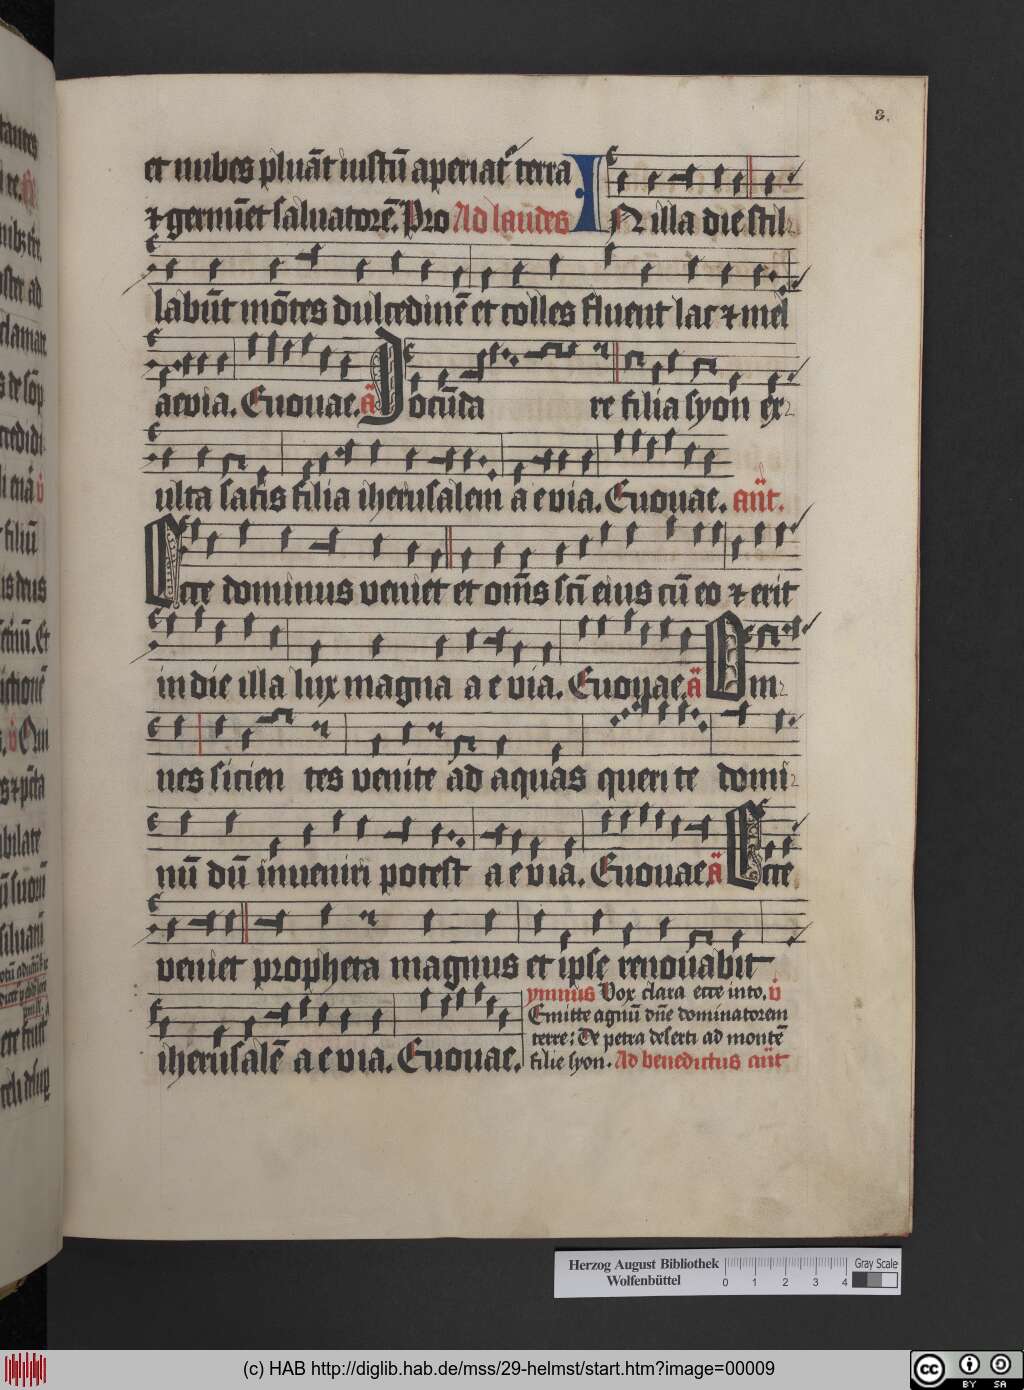 3.
et nubes pluāt iustū aperiat᷑ terra
⁊ germīet saluatorē. Pro Ad laudes IN illa die stil
labūt mōtes dulcedinē et colles fluent lac ⁊ mel
aevia. Euouae. ā Iocūda re filia syon ex
ulta satis filia iherusalem aevia. Euouae. añt.
Ecce dominus veniet et om̄s scī eius cū eo ⁊ erit
in die illa lux magna aevia. Euouae. ā Om
nes sicien tes venite ad aquas queri te domi
nū dū inueniri potest aevia. Euouae. ā Ecce
veniet propheta magnus et ipse renouabit
iherusalē aevia. Euouae.
ymnus Vox clara ecce into. v̄
Emitte agnū dn̄e dominatorem
terre: De petra deserti ad montē
filie syon. Ad benedictus añt
Herzog August Bibliothek
Wolfenbüttel
0 1 2 3 4
Gray Scale
(c) HAB http://diglib.hab.de/mss/29-helmst/start.htm?image=00009
cc BY SA